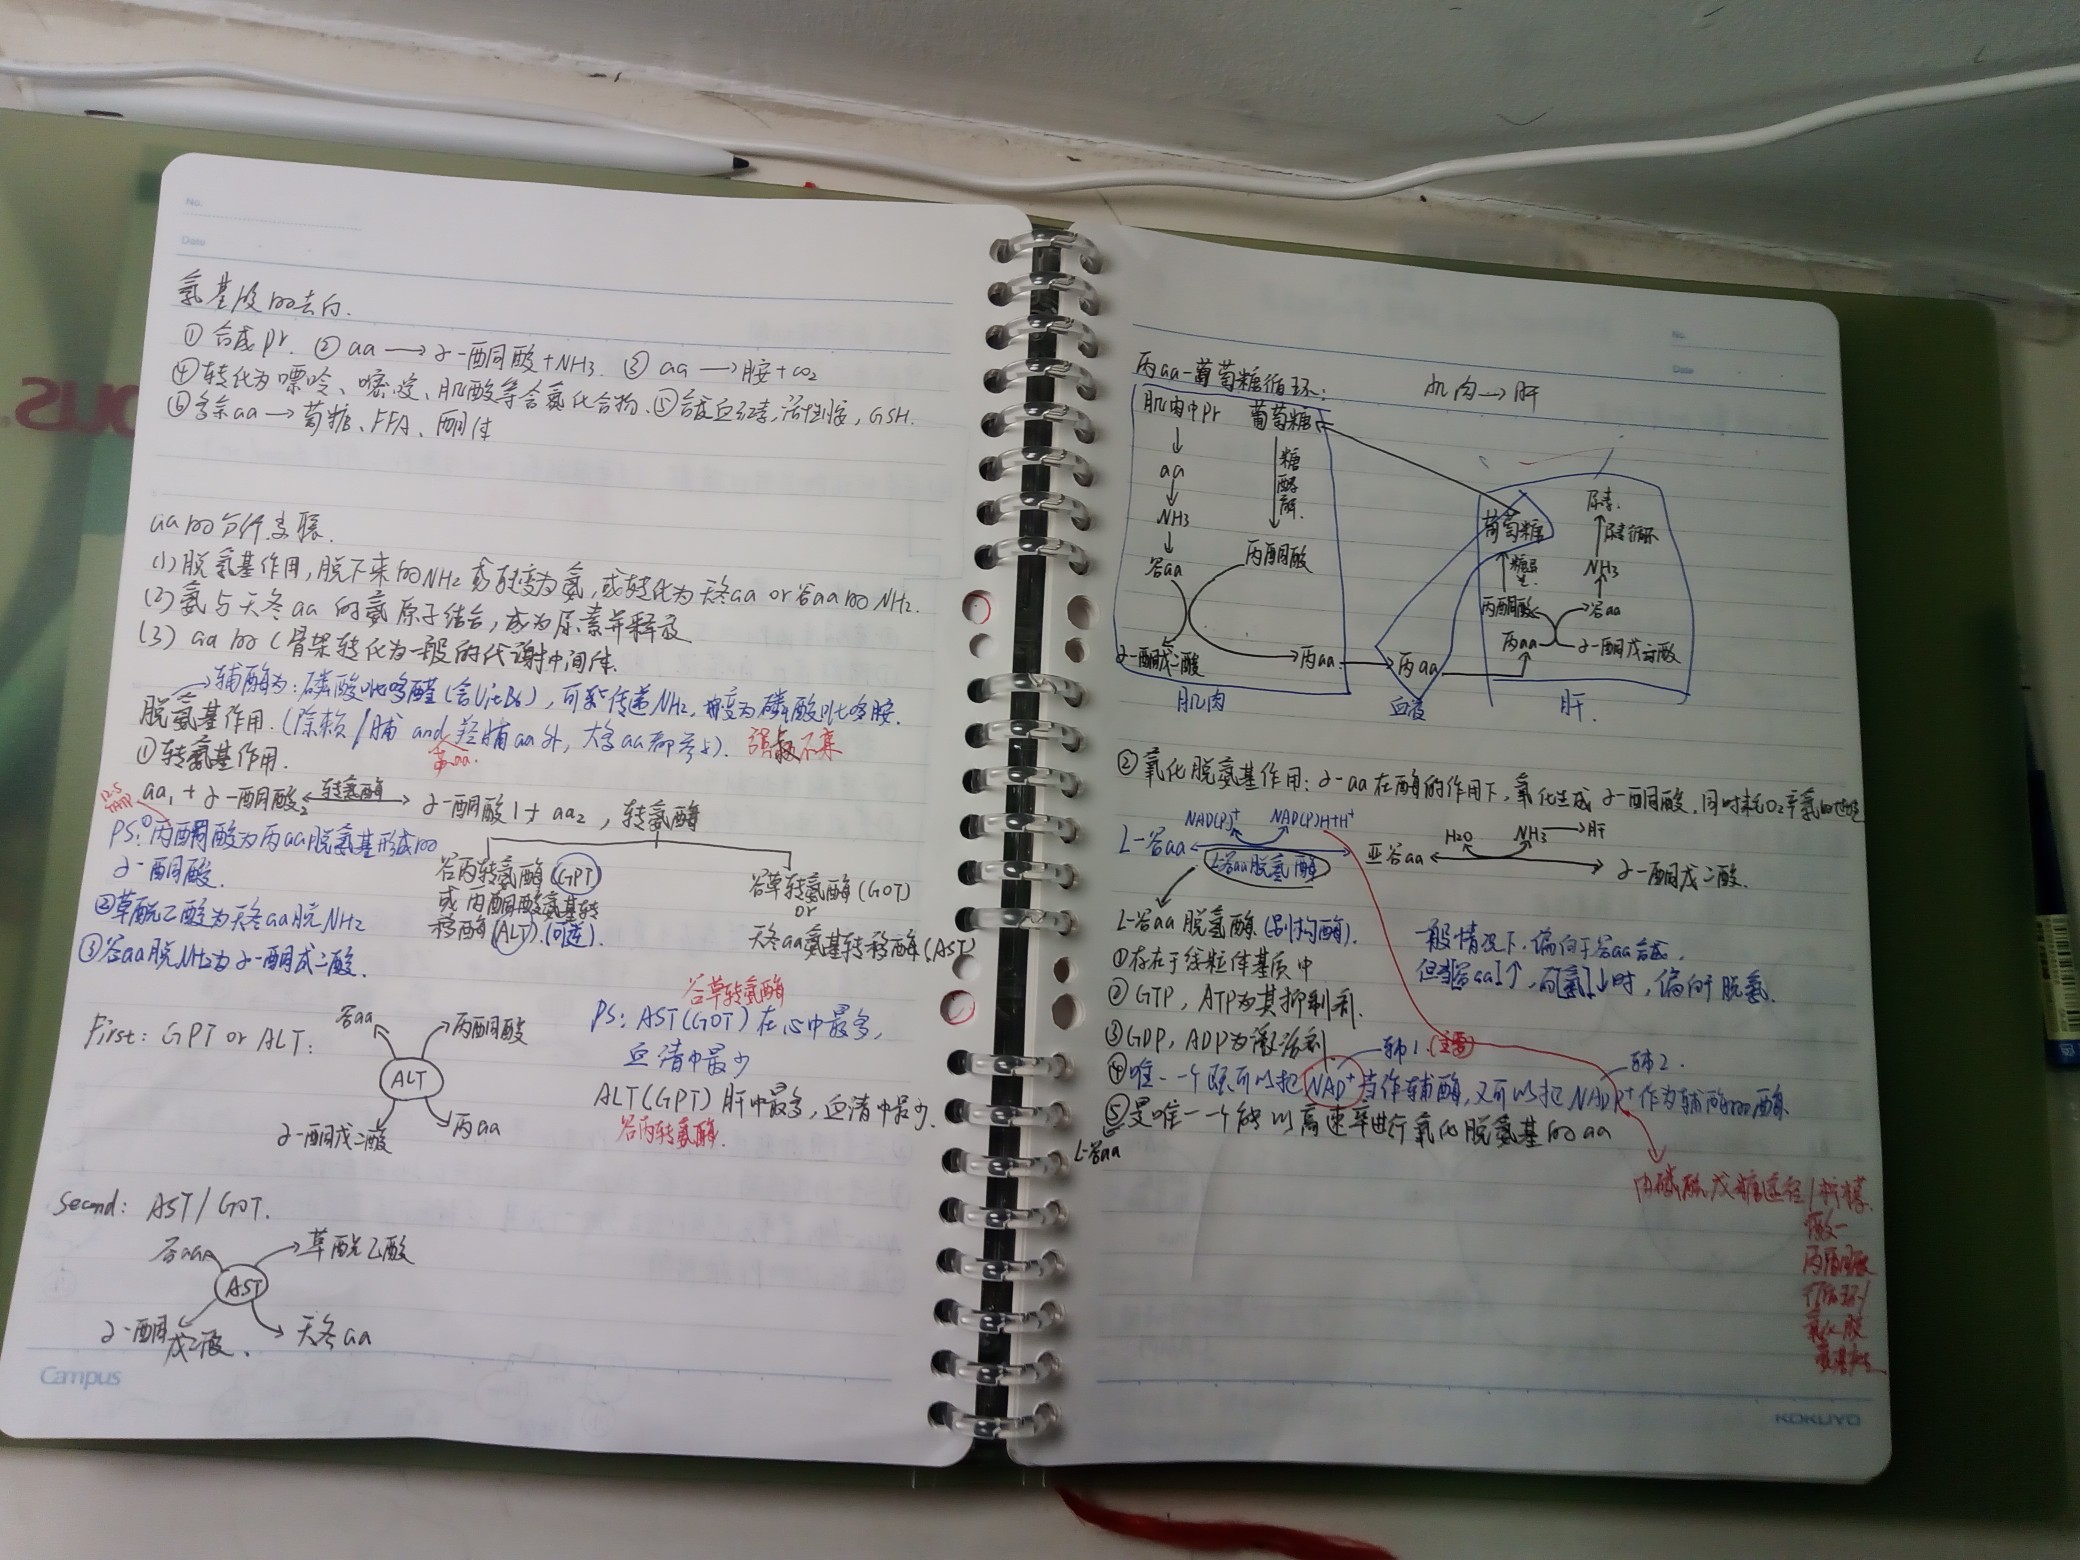 No.
Date
氨基酸的去向.
① 合成pr. ② aa → α-酮酸+NH3. ③ aa → 胺+CO2
④转化为嘌呤、嘧啶、肌酸等含氮化合物. ⑤合成血红素,活性胺, GSH.
⑥多余aa → 葡糖、FFA、酮体
aa的分解
(1) 脱氨基作用,脱下来的NH2 变为氨,或转化为天冬aa or 谷aa的NH2.
(2) 氨与天冬aa 的氮原子结合,成为尿素并释放
(3) aa的C骨架转化为一般的代谢中间体.
辅酶为:磷酸吡哆醛(含VitB6),可 传递NH2, 变为磷酸吡哆胺.
脱氨基作用. (除赖/脯 and 羟脯aa外, 大多aa都参与).
①转氨基作用.
aa1 + α-酮酸2 转氨酶 α-酮酸1 + aa2 , 转氨酶
PS:①丙酮酸为丙aa脱氨基形成的
α-酮酸.
②草酰乙酸为天冬aa脱NH2
③谷aa脱NH2为α-酮戊二酸.
谷丙转氨酶(GPT)
或 丙酮酸氨基转
移酶(ALT).(可逆).
谷草转氨酶(GOT)
or
天冬aa氨基转移酶(AST)
First: GPT or ALT:
谷aa
丙酮酸
ALT
α-酮戊二酸
丙aa
谷草转氨酶
PS: AST(GOT) 在心中最多,
血清中最少
ALT(GPT) 肝中最多, 血清中最少.
谷丙转氨酶.
Second: AST/GOT.
谷aa
草酰乙酸
AST
α-酮戊二酸.
天冬aa
Campus
No.
Date
丙aa-葡萄糖循环: 肌肉→肝
肌肉中pr 葡萄糖
aa
糖酵解.
NH3
谷aa
丙酮酸
α-酮戊二酸
丙aa
肌肉
丙aa
血液
葡萄糖
丙酮酸
丙aa
尿素.
尿素循环
NH3
谷aa
α-酮戊二酸
肝.
② 氧化脱氨基作用: α-aa在酶的作用下,氧化生成α-酮酸.同时耗O2
NAD(P)+ NAD(P)H+H+
H2O NH3 → 肝
L-谷aa L-谷aa脱氢酶 亚谷aa α-酮戊二酸.
L-谷aa 脱氢酶 (别构酶).
①存在于线粒体基质中
② GTP, ATP为其抑制剂.
③ GDP, ADP为激活剂.
一般情况下,偏向于谷aa合成.
但当[谷aa]↑,而[氨]↓时, 偏向于脱氨.
辅1.(主要)
辅2.
④唯一一个既可以把NAD+当作辅酶,又可以把NADP+作为辅酶的酶.
⑤是唯一一个能以高速率进行氧化脱氨基的aa
L-谷aa
丙酮酸
氧化脱
KOKUYO